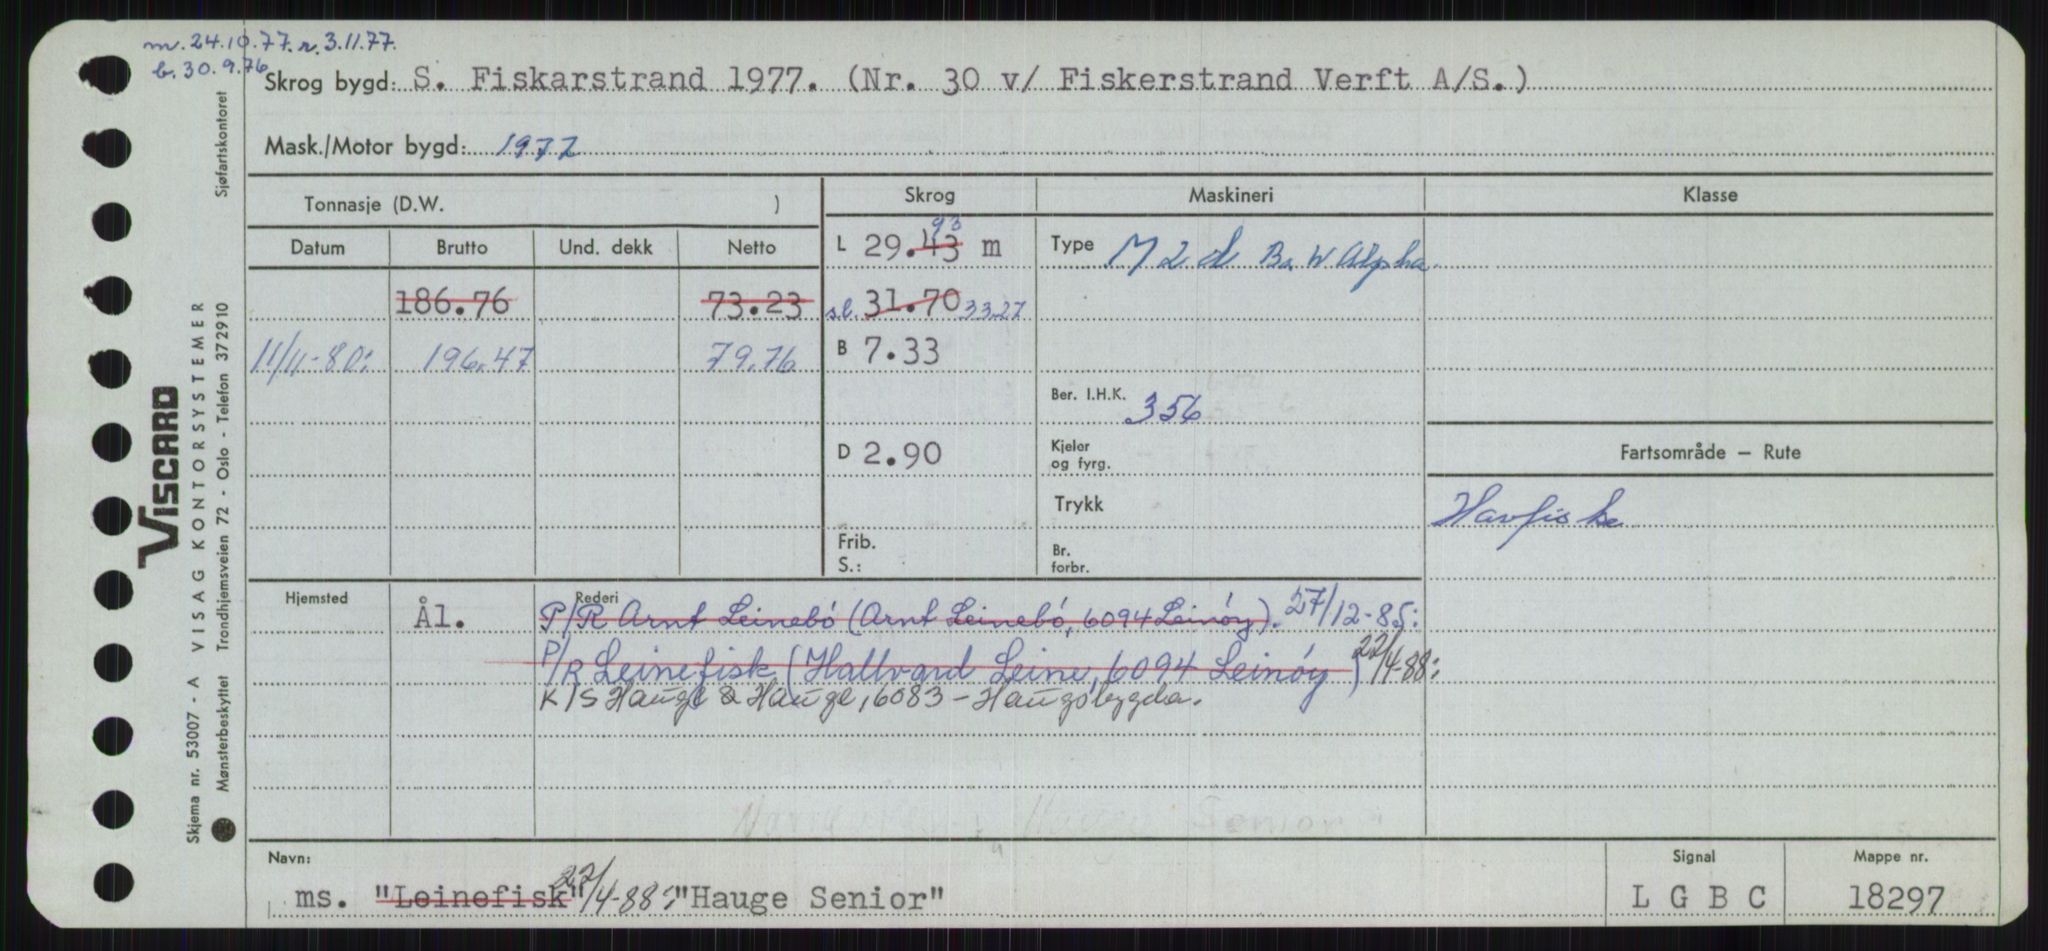 m. 24.10.77. r. 3.11.77.
b. 30.9.76
Skrog bygd: S. Fiskarstrand 1977. (Nr. 30 v/ Fiskerstrand Verft A/S.)
Mask./Motor bygd: 1977
Tonnasje (D.W. )
Skrog
Maskineri
Klasse
Datum Brutto Und. dekk Netto
186.76 73.23
11/11-80: 196.47 79.76
L 29.43 93 m
s.l. 31.70 33.27
B 7.33
D 2.90
Frib.
S.:
Type M 2 d B. W Alpha.
Ber. I.H.K. 356
Kjeler
og fyrg.
Trykk
Br.
forbr.
Fartsområde — Rute
Havfiske
Hjemsted
Ål.
Rederi
P/R Arnt Leinebó (Arnt Leinebó, 6094 Leinóy). 27/12-85:
P/R Leinefisk (Hallvard Leine, 6094 Leinóy) 22/4-88:
K/S Hauge & Hauge, 6083 - Haugsbygda.
Senior
Navn:
ms. "Leinefisk" 22/4-88: "Hauge Senior"
Signal
L G B C
Mappe nr.
18297
VISCARD
Skjema nr. 53007 - A VISAG KONTORSYSTEMER
Mønsterbeskyttet Trondhjemsveien 72 - Oslo - Telefon 372910
Sjøfartskontoret